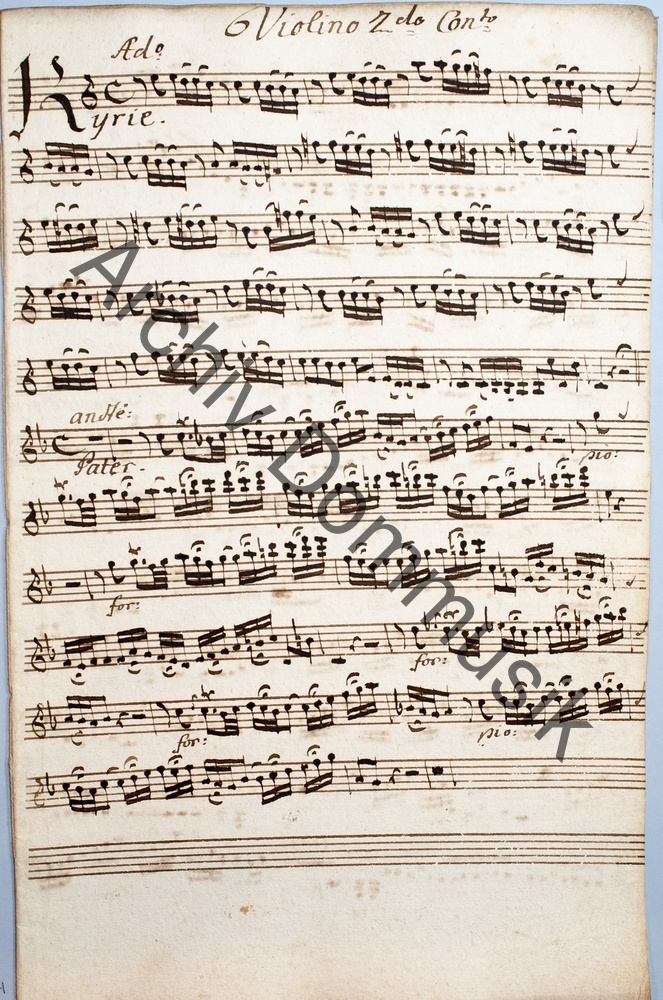 Violino 2do Conto
Ado
Kyrie.
andte:
Pater.
pio:
for:
for:
for:
pio:
Archiv Dommusik